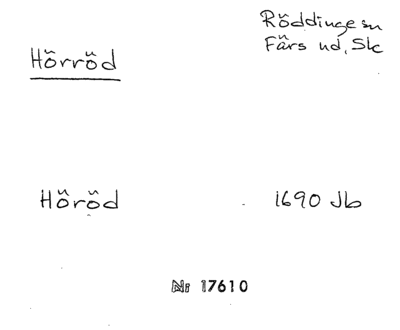 Röddinge sn
Färs hd, Sk
Hörröd
Höröd 1690 Jb
Nr 17610